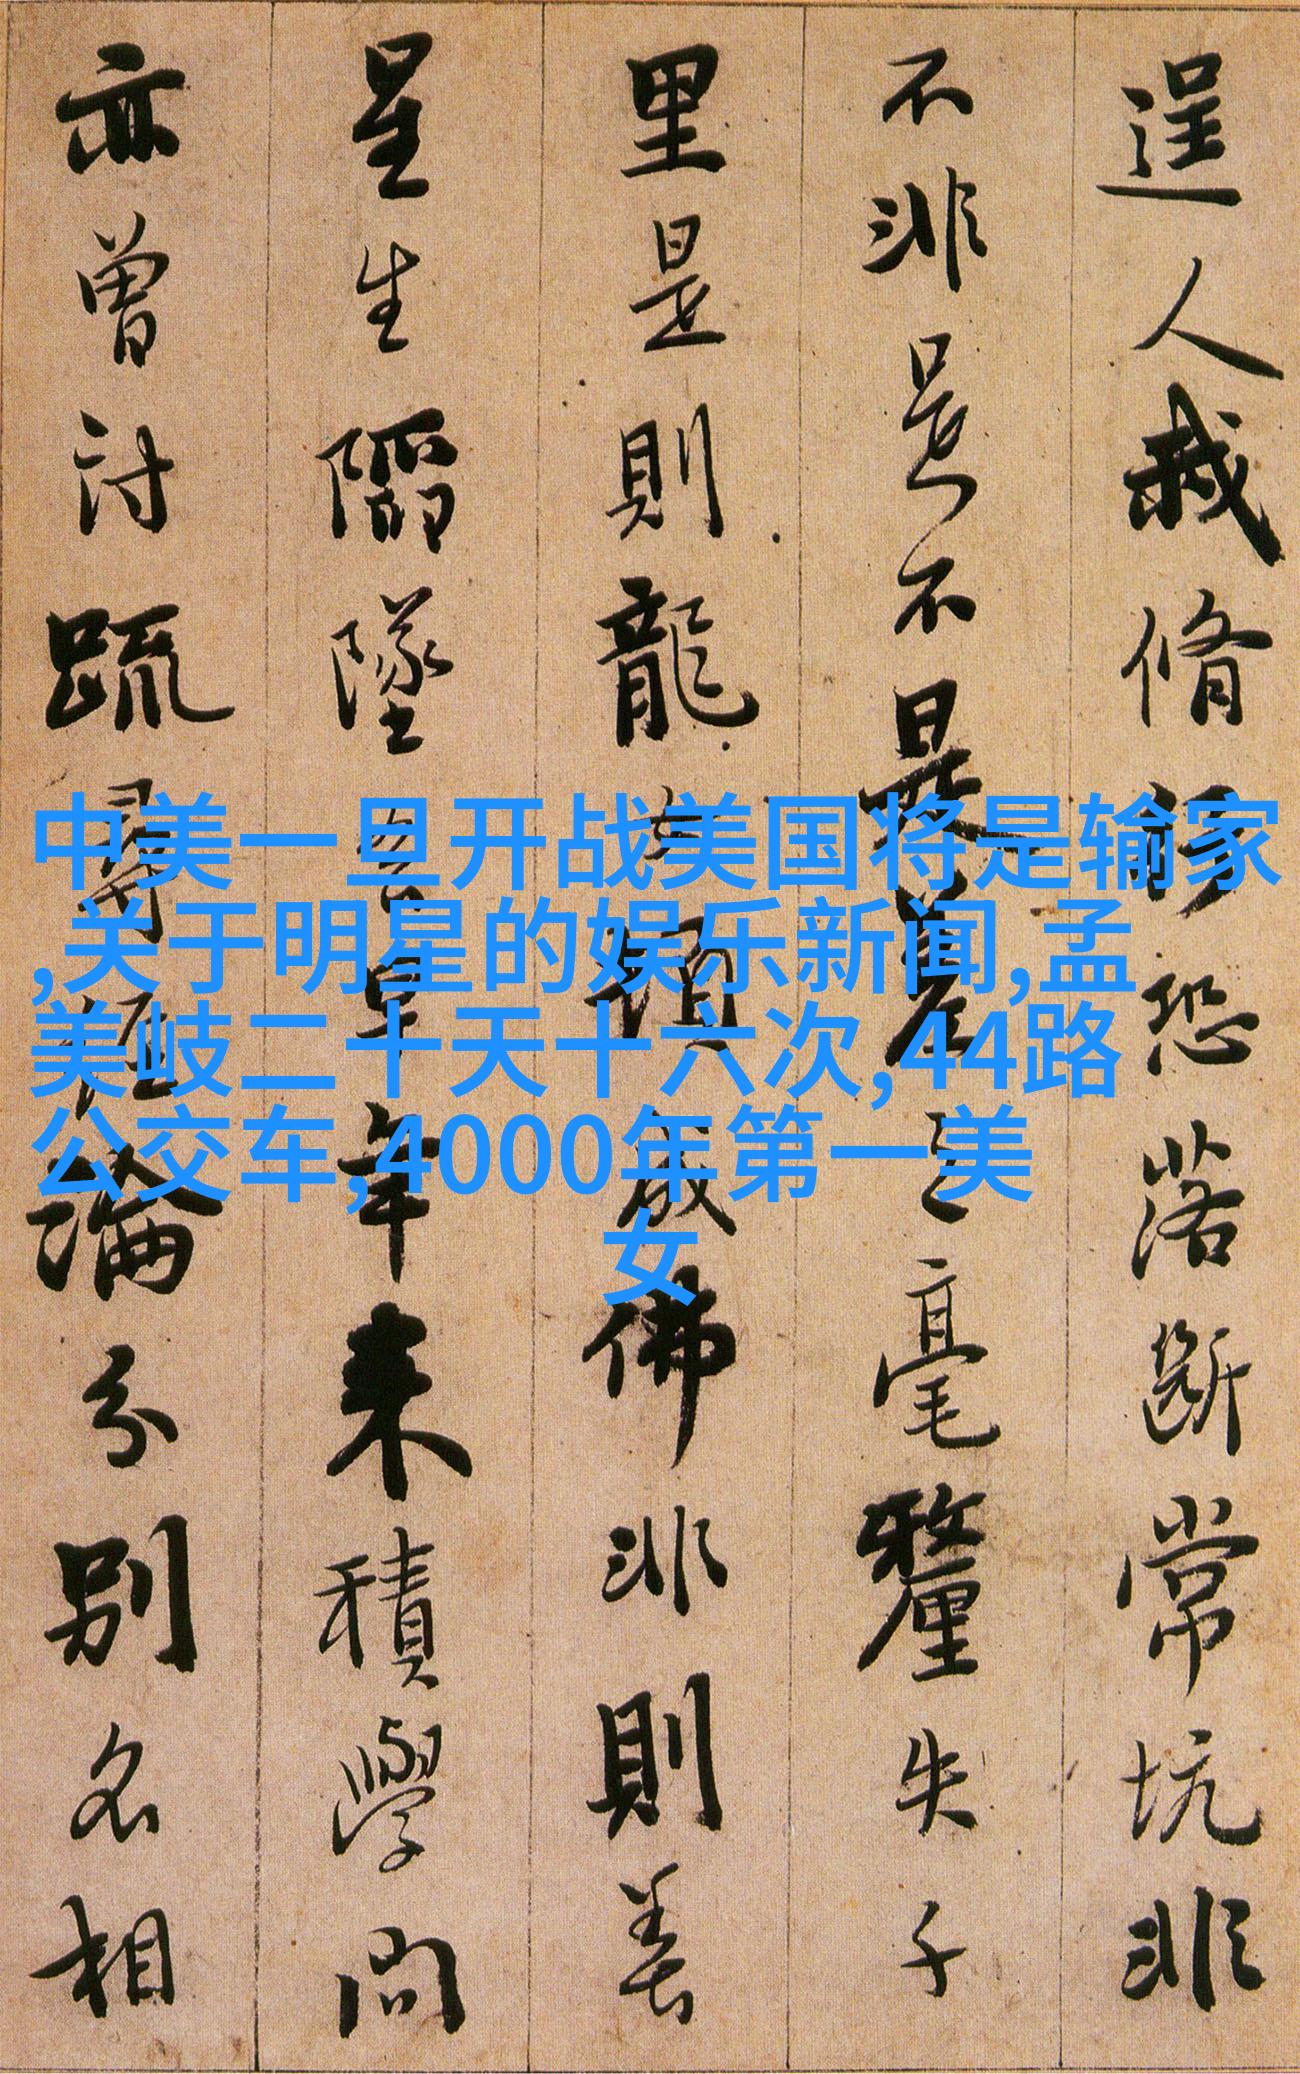 逞人我脩行恐落斷常坑非
不非是不是差之毫釐失千
里是則龍女頓成佛非則善
星生陷墜吾早年来積學問
亦曾討䟽尋經論分別名相
中美一旦开战美国将是输家
,关于明星的娱乐新闻,孟
美岐二十天十六次,44路
公交车,4000年第一美
女